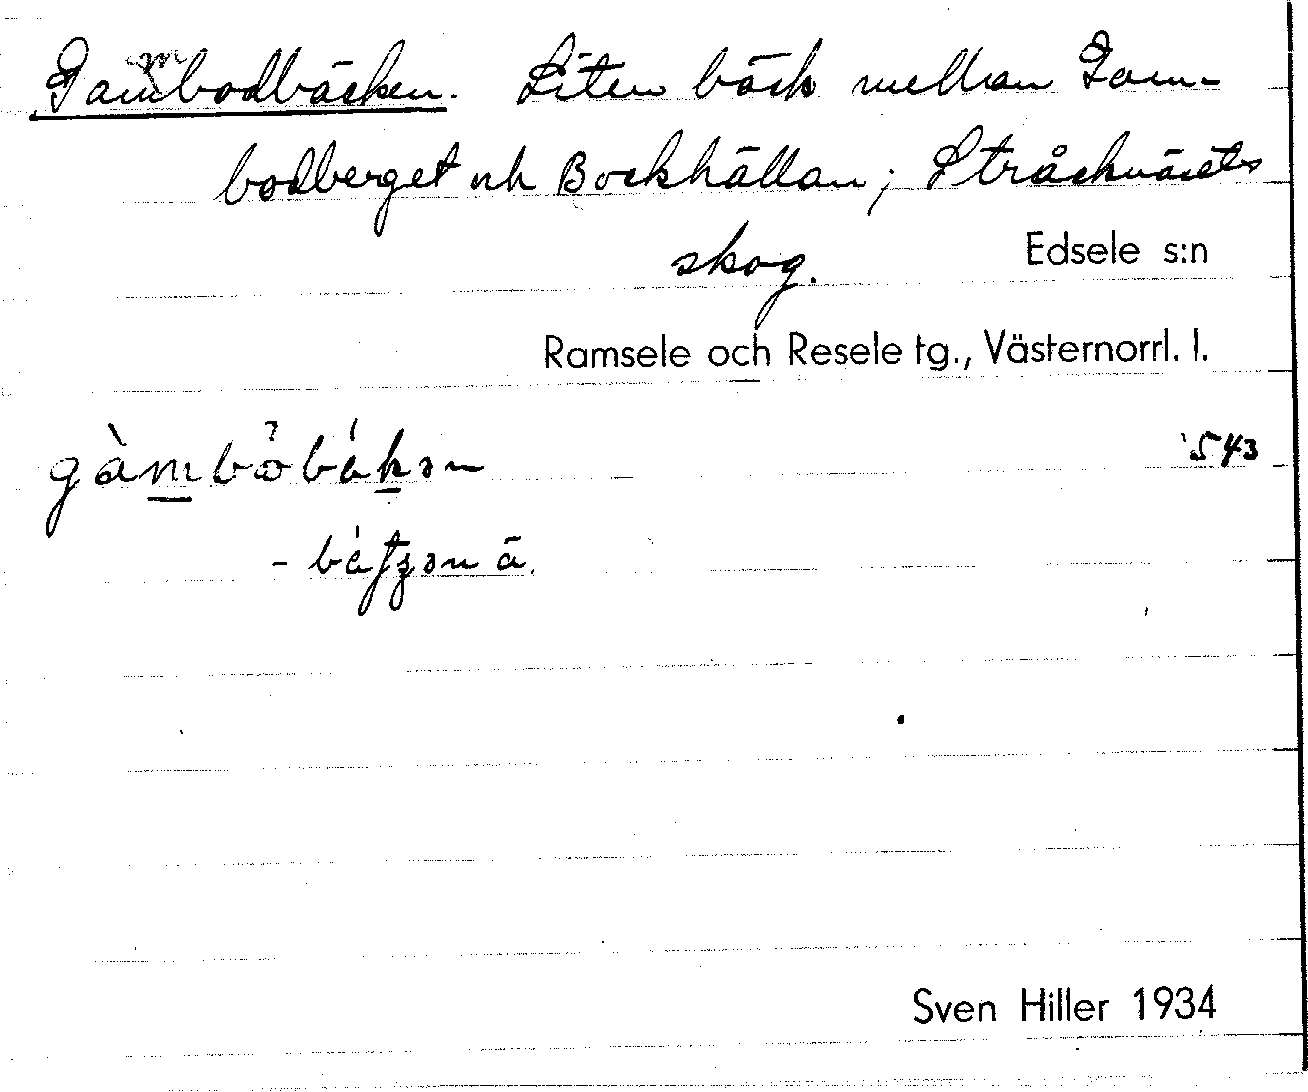 Gambodbäcken. Liten bäck mellan Gam-
bodberget och Bockhällan; Stråcknäsets
skog. Edsele s:n
Ramsele och Resele tg., Västernorrl. l.
543
Sven Hiller 1934